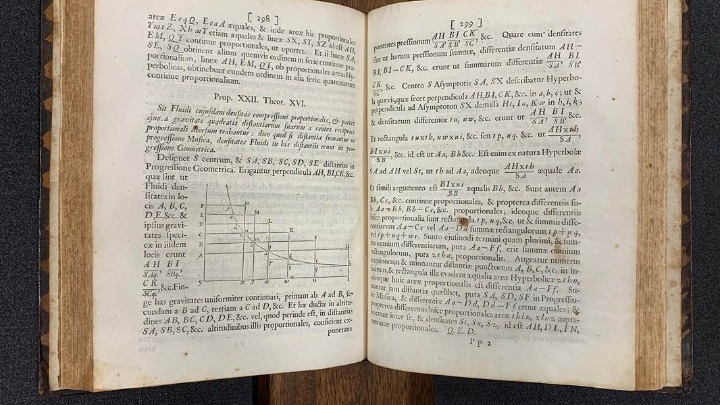 [ 298 ]
areæ EeqQ, EeaA æquales, & inde areæ his proportionales
YuitZ, XhuY etiam æquales & lineæ SX, SY, SZ id est AH,
EM, QT continue proportionales, ut oportet. Et si lineæ SA,
SE, SQ obtinent alium quemvis ordinem in serie continue pro-
portionalium, lineæ AH, EM, QT, ob proportionales areas Hy-
perbolicas, obtinebunt eundem ordinem in alia serie quantitatum
continue proportionalium.
Prop. XXII. Theor. XVI.
Sit Fluidi cujusdam densitas compressioni proportionalis, & partes
ejus a gravitate quadratis distantiarum suarum a centro reciproce
proportionali deorsum trahantur: dico quod si distantiæ sumantur in
progressione Musica, densitates Fluidi in his distantiis erunt in pro-
gressione Geometrica.
Designet S centrum, & SA, SB, SC, SD, SE distantias in
Progressione Geometrica. Erigantur perpendicula AH, BI, CK, &c.
quæ sint ut
Fluidi den-
sitates in lo-
cis A, B, C,
D, E, &c. &
ipsius gravi-
tates speci-
cæ in iisdem
locis erunt
AH BI
SAq. SBq.
CK
SCq. &c. Fin-
ge has gravitates uniformiter continuari, primam ab A ad B, se-
cundam a B ad C, tertiam a C ad D, &c. Et hæ ductæ in altitu-
dines AB, BC, CD, DE, &c. vel, quod perinde est, in distantias
SA, SB, SC, &c. altitudinibus illis proportionales, conficient ex-
ponentes
[ 299 ]
ponentes pressionum AH BI CK
SA SB SC, &c. Quare cum densitates
sint ut harum pressionum summæ, differentiæ densitatum AH—
BI, BI—CK, &c. erunt ut summarum differentiæ AH BI
SA SB
CK
SC &c. Centro S Asymptotis SA, SX describatur Hyperbo-
la quævis, quæ secet perpendicula AH, BI, CK, &c. in a, b, c, ut &
perpendicula ad Asymptoton SX demissa Ht, Iu, Kw in h, i, k;
& densitatum differentiæ tu, uw, &c. erunt ut AH BI
SA SB &c.
Et rectangula tuxth, uwxui, &c. seu tp, uq, &c. ut AHxth
SA
BIxui
SB &c. id est ut Aa, Bb &c. Est enim ex natura Hyperbolæ
SA ad AH vel St, ut th ad Aa, adeoque AHxth
SA æquale Aa.
Et simili argumento est BIxui
SB æqualis Bb, &c. Sunt autem Aa
Bb, Cc, &c. continue proportionales, & propterea differentiis su-
is Aa—Bb, Bb—Cc, &c. proportionales; ideoque differentiis
hisce proportionalia sunt rectangula tp, uq, &c. ut & summis diffe-
rentiarum Aa—Cc vel Aa—Dd summæ rectangulorum tp+uq
vel tp+uq+wr. Sunto ejusmodi termini quam plurimi, & sum-
ma omnium differentiarum, puta Aa—Ff, erit summæ omnium
rectangulorum, puta zthn, proportionalis. Augeatur numerus
terminorum & minuantur distantiæ punctorum A, B, C, &c. in in-
finitum, & rectangula illa evadent æqualia areæ Hyperbolicæ zthn,
adeoque huic areæ proportionalis est differentia Aa—Ff. Su-
mantur jam distantiæ quælibet, puta SA, SD, SF in Progressio-
ne Musica, & differentiæ Aa—Dd, Dd—Ff erunt æquales; &
propterea differentiis hisce proportionales areæ thlx, xlnz æqua-
les erunt inter se, & densitates St, Sx, Sz, id est AH, DL, FN,
continue proportionales. Q. E. D.
Pp 2